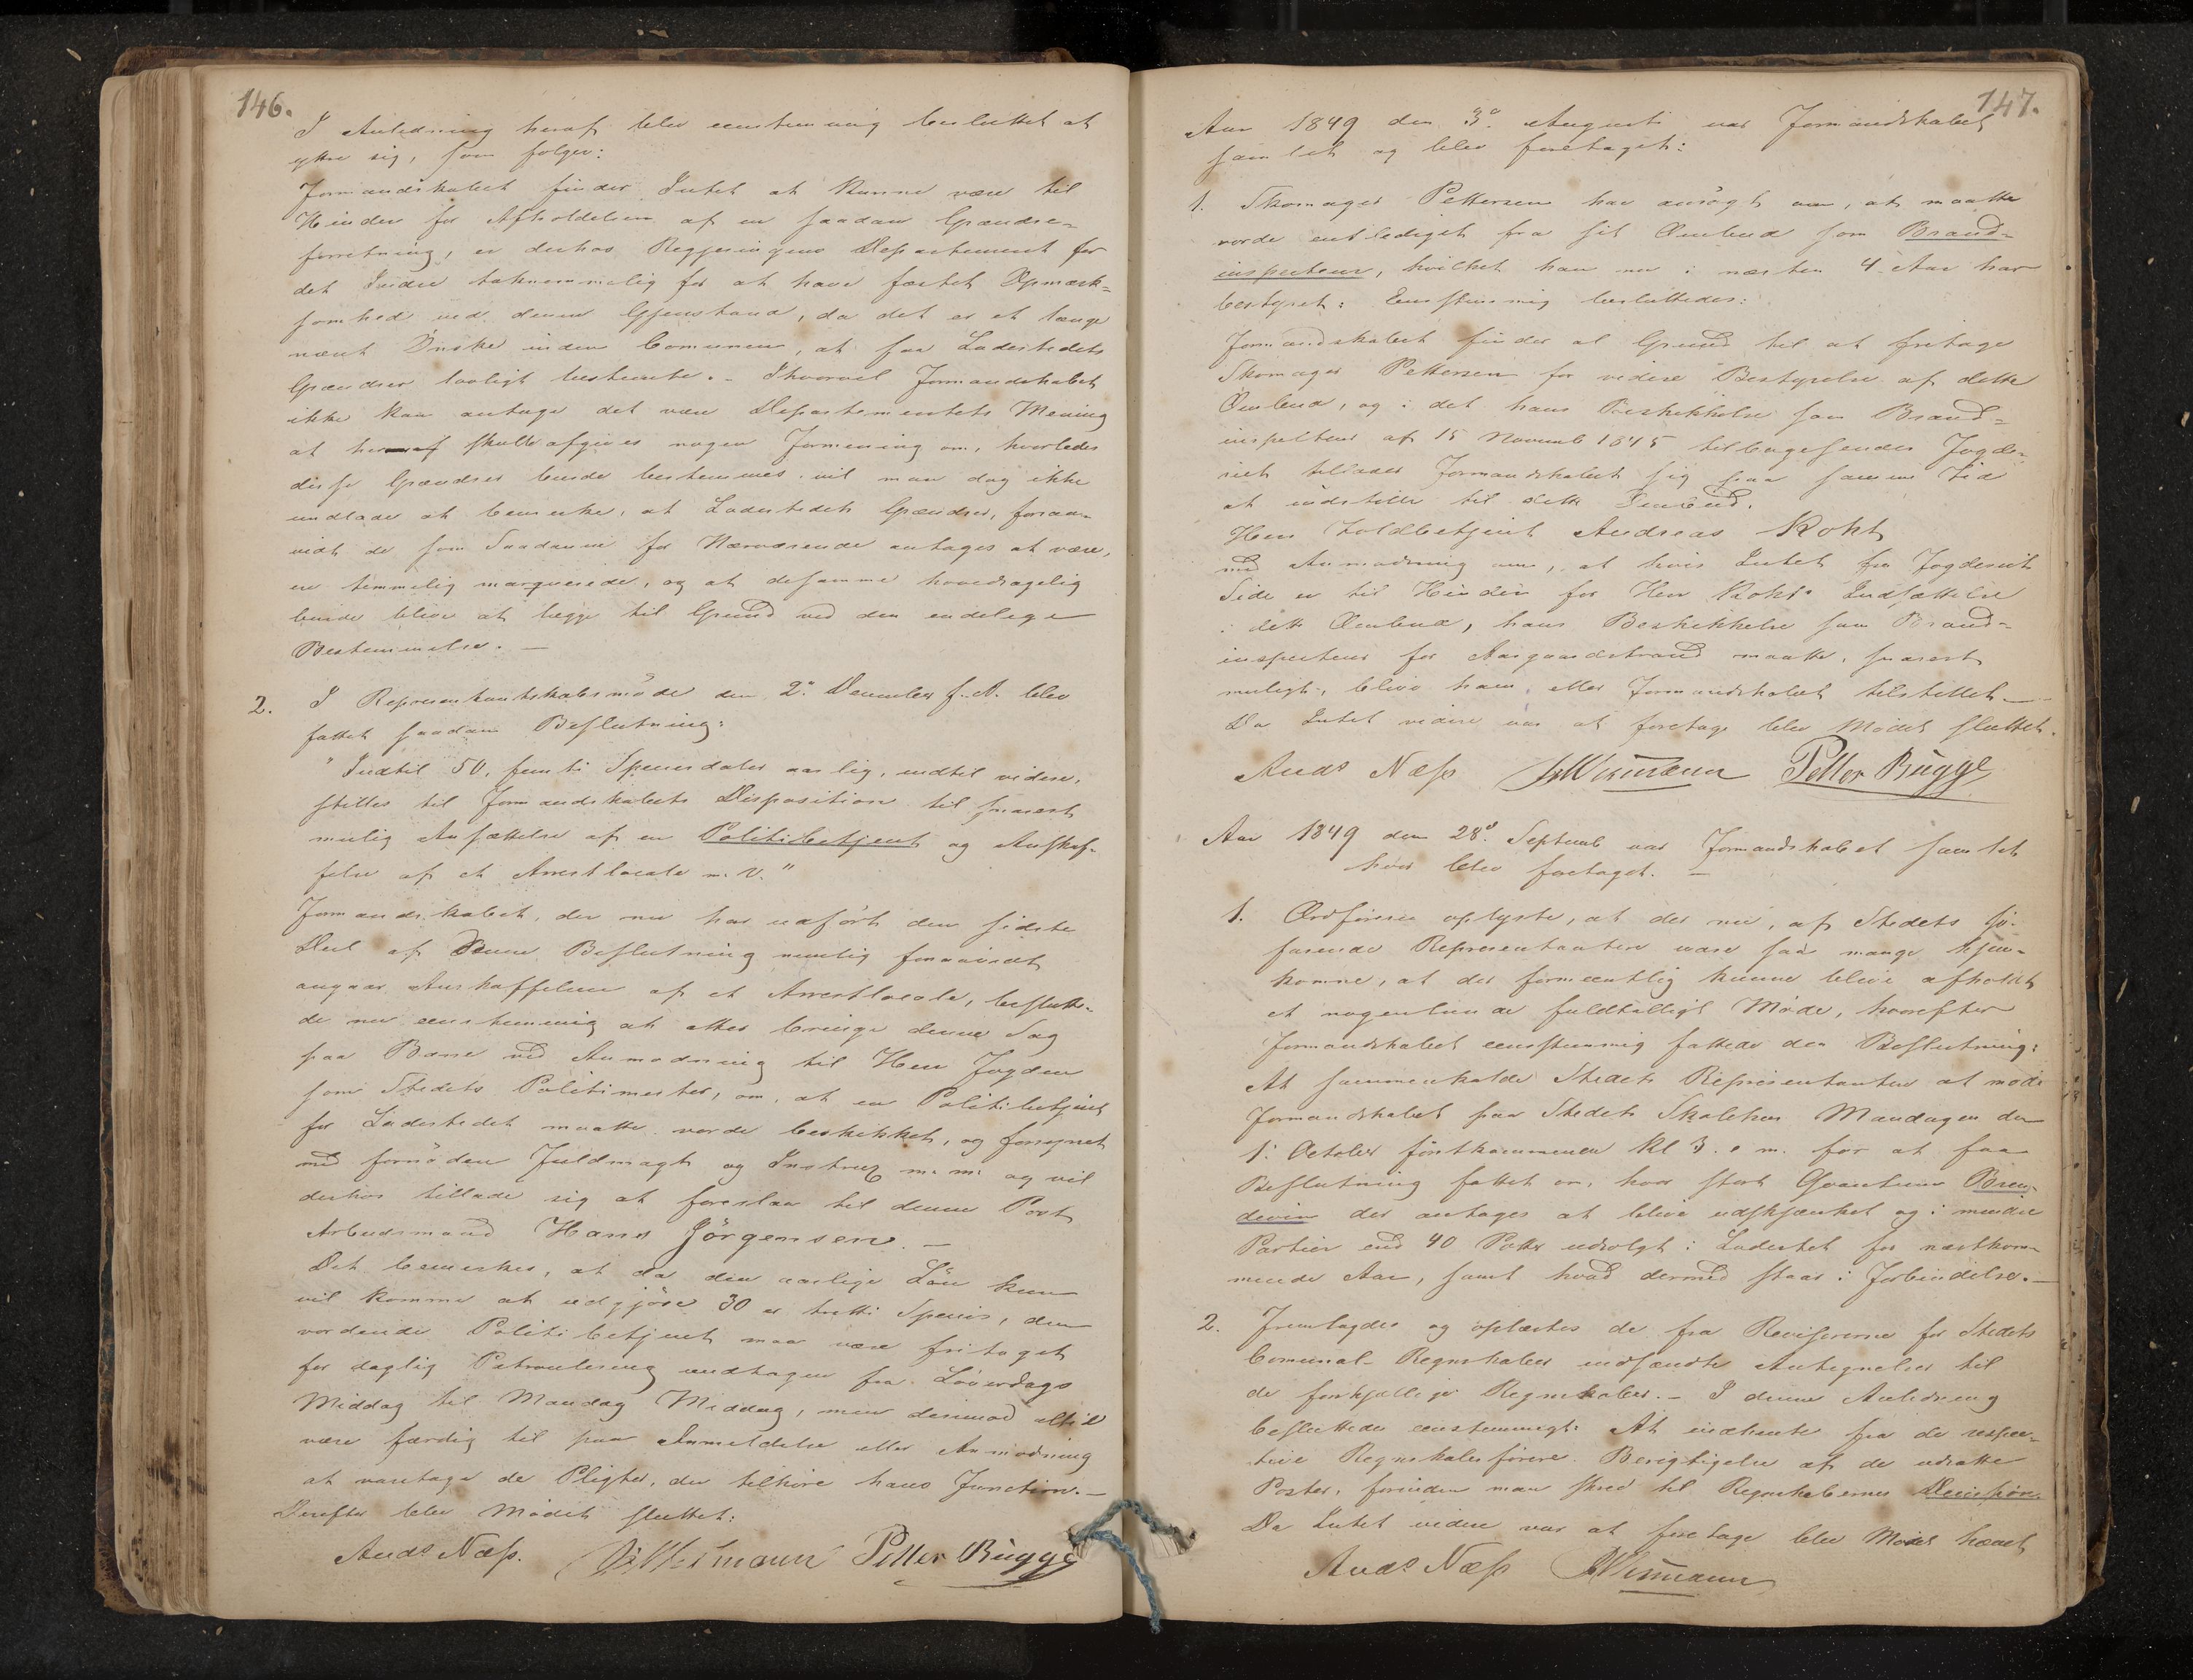 146.
I Anledning heraf blev eenstemmig besluttet at
yttre sig, som følger:
Formandskabet finder Intet at kunne være til
Hinder for Afholdelsen af en saadan Grændse-
forretning, er derhos Regjeringens Departement for
det Indre taknemmelig for at have fæstet Opmærk-
somhed ved denne Gjenstand, da det er et længe
næret Ønske inden Comunen, at faa Ladestedets
Grændser lovligt bestemte. - Ihvorvel Formandskabet
ikke kan antage det være Departementets Mening
at heraf skulde afgives nogen Formening om, hvorledes
disse Grændser burde bestemmes, vil man dog ikke
undlade at bemerke, at Ladestedets Grændser, forsaa-
vidt de som Saadanne for Nærværende antages at være,
er temmelig marquerede, og at desamme hovedsagelig
burde blive at lægge til Grund ved den endelige
Bestemmelse. —
2. I Representantskabsmøde den 2den December f. A. blev
fattet saadan Beslutning:
"Indtil 50, femti Speciesdaler aarlig, indtil videre,
stilles til Formandskabets Disposition til snarest
mulig Ansættelse af en Politibetjent og Anskaf-
felse af et Arrestlocale m. v."
Formandskabet, der nu har udført den sidste
Deel af denne Beslutning nemlig forsaavidt
angaar Anskaffelsen af et Arrestlocale, beslutte-
de nu eenstemmig at atter bringe denne Sag
paa Bane ved Anmodning til Herr Fogden
som Stedets Politimester, om, at en Politibetjent
for Ladestedet maatte vorde beskikket, og forsynet
med fornøden Fuldmagt og Instrux m. m. og vil
derhos tillade sig at foreslaa til denne Post
Arbeidsmand Hans Jörgensen. —
Det bemerkes, at da den aarlige Løn kun
vil komme at udgjøre 30 er tretti Species, den
vordende Politibetjent maa være fritaget
for daglig Patroulering undtagen fra Løverdags
Middag til Mandag Middag, men derimod altid
være færdig til paa Anmeldelse eller Anmodning
at varetage de Pligter, der tilhøre hans Function. —
Derefter blev Mødet sluttet:
Ands Næss. Petter Bügge
147.
Aar 1849 den 3die Augusti var Formandskabet
samlet og blev foretaget:
1. Skomager Pettersen har ansøgt om, at maatte
vorde entlediget fra sit Ombud som Brand-
inspecteur, hvilket han nu i næsten 4 Aar har
bestyret: Eenstemmig besluttedes:
Formandskabet finder al Grund til at fritage
Skomager Pettersen for videre Bestyrelse af dette
Ombud, og i det hans Beskikkelse som Brand-
inspekteur af 15 Novemb 1845 tilbagesendes Fogde-
riet tillader Formandskabet sig paa samme Tid
at indstille til dette Ombud,
Herr Toldbetjent Andreas Kokt
med Anmodning om, at hvis Intet fra Fogderiets
Side er til Hinder for Herr Kokts Indsættelse
i dette Ombud, hans Beskikkelse som Brand-
inspecteur for Aasgaardstrand maatte, snarest
muligt, blive ham eller Formandskabet tilstillet —
Da Intet videre var at foretage blev Mødet sluttet.
Ands Næss Petter Bügge
Aar 1849 den 28de Septemb var Formandskabet samlet
hvor blev foretaget. —
1. Ordføreren oplyste, at der nu, af Stedets sø-
farende Representanter vare saa mange hjem-
komne, at der formeentlig kunne blive afholdt
et nogenlunde fuldtalligt Møde, hvorefter
Formandskabet eenstemmig fattede den Beslutning:
At sammenkalde Stedets Representanter at møde
Formandskabet paa Stedets Skolehus Mandagen den
1. October førstkommende Kl 3. e. m. for at faa
Beslutning fattet om, hvor stort Qvantum Bræn-
deviin der antages at blive udskjænket og i mindre
Partier end 40 Potter udsolgt i Ladestet for næstkom-
mende Aar, samt hvad dermed staar i Forbindelse. —
2. Fremlagdes og oplæstes de fra Revisorerne for Stedets
Comunal-Regnskaber indsendte Antegnelser til
de forskjellige Regnskaber. - I denne Anledning
besluttedes eenstemmigt: At indhente fra de respec-
tive Regnskabsførere Berigtigelse af de udsatte
Poster, forinden man skred til Regnskabernes Decision.
Da Intet videre var at foretage blev Mødet hævet
Ands Næss